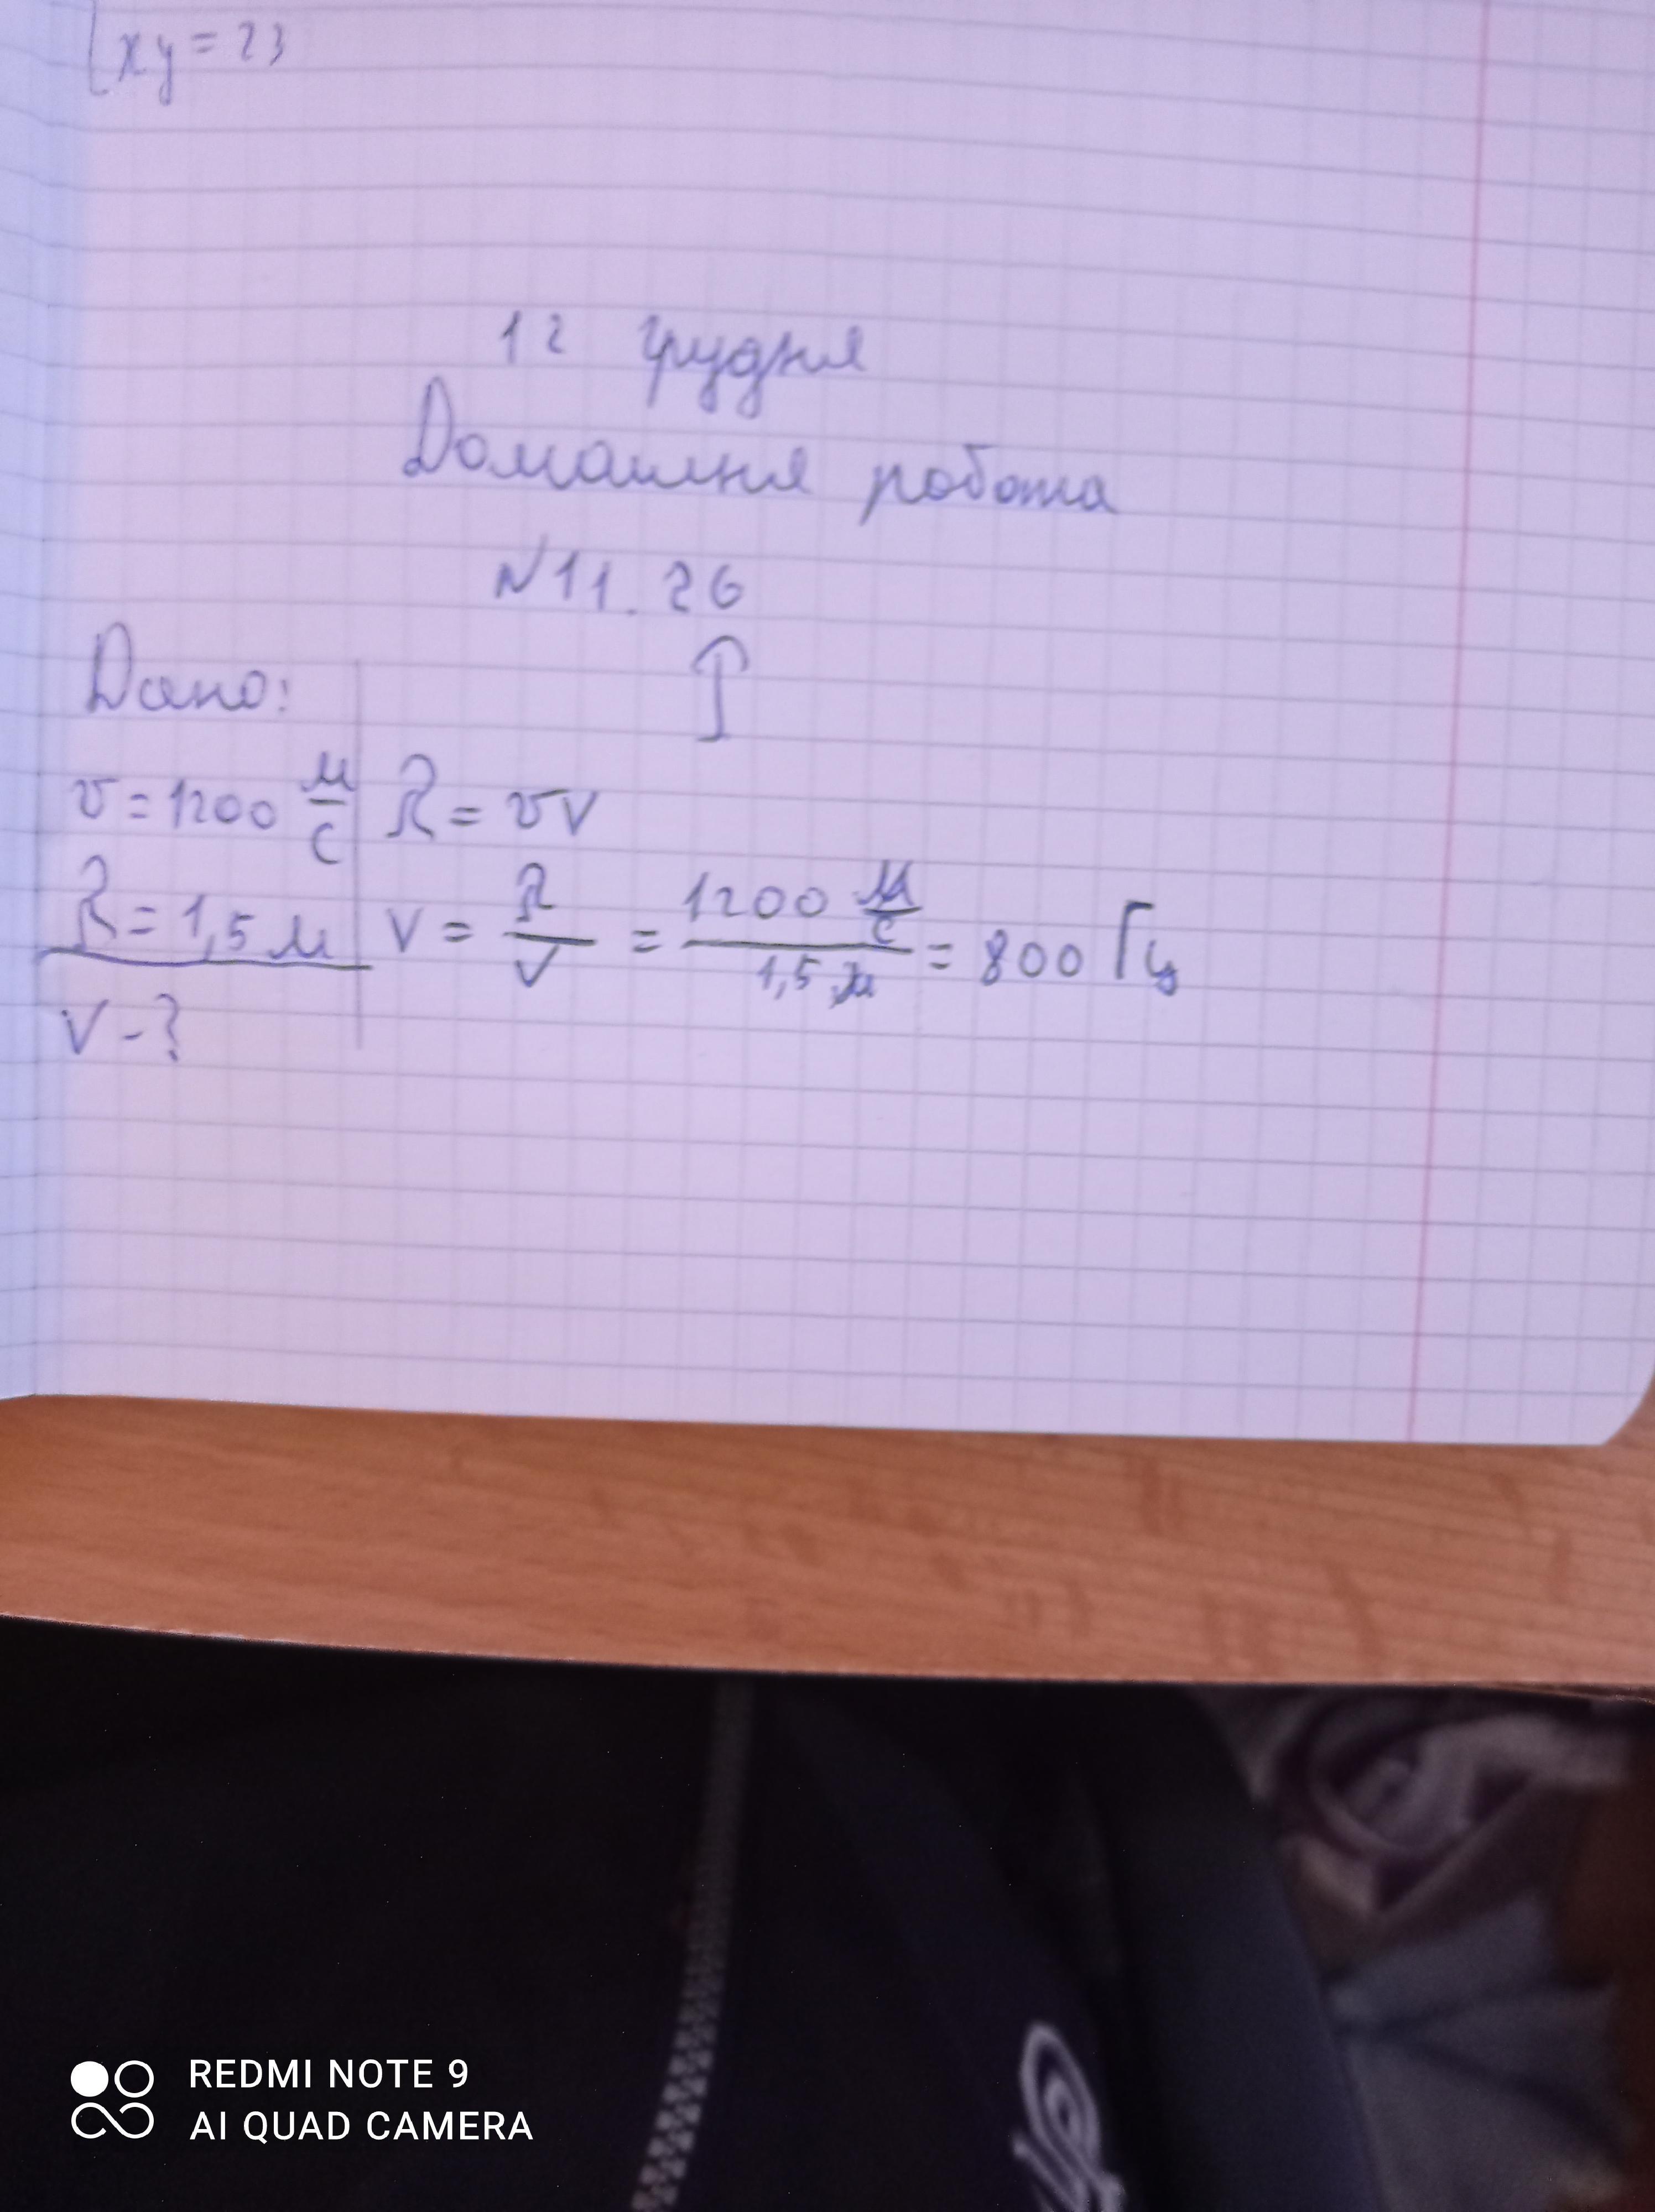 xy = 23
12 грудня
Домашня робота
№11.26
Дано:
v = 1200 м/с
λ = vν
λ = 1,5 м
ν = λ/v = 1200 м/с / 1,5 м = 800 Гц
ν - ?
REDMI NOTE 9
AI QUAD CAMERA